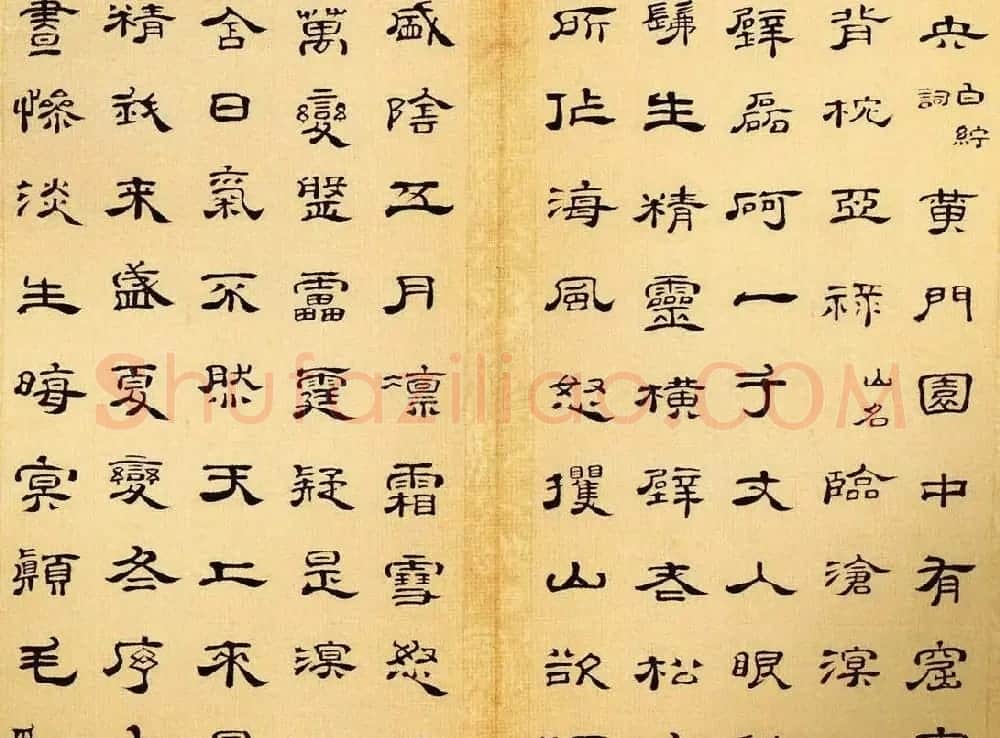 白紵
詞
黃門園中有窟
背枕亞祿
山名
臨滄溟
壁磊砢一千丈人眼
髴生精靈橫壁老松
所佔海風怒攫山欲
盛陰五月凛霜雪怒
萬變盤靁霆疑是溟
舍日氣不然天上來
精我来盛夏變冬序
晝慘淡生晦冥顛毛
Shufaziliao.COM